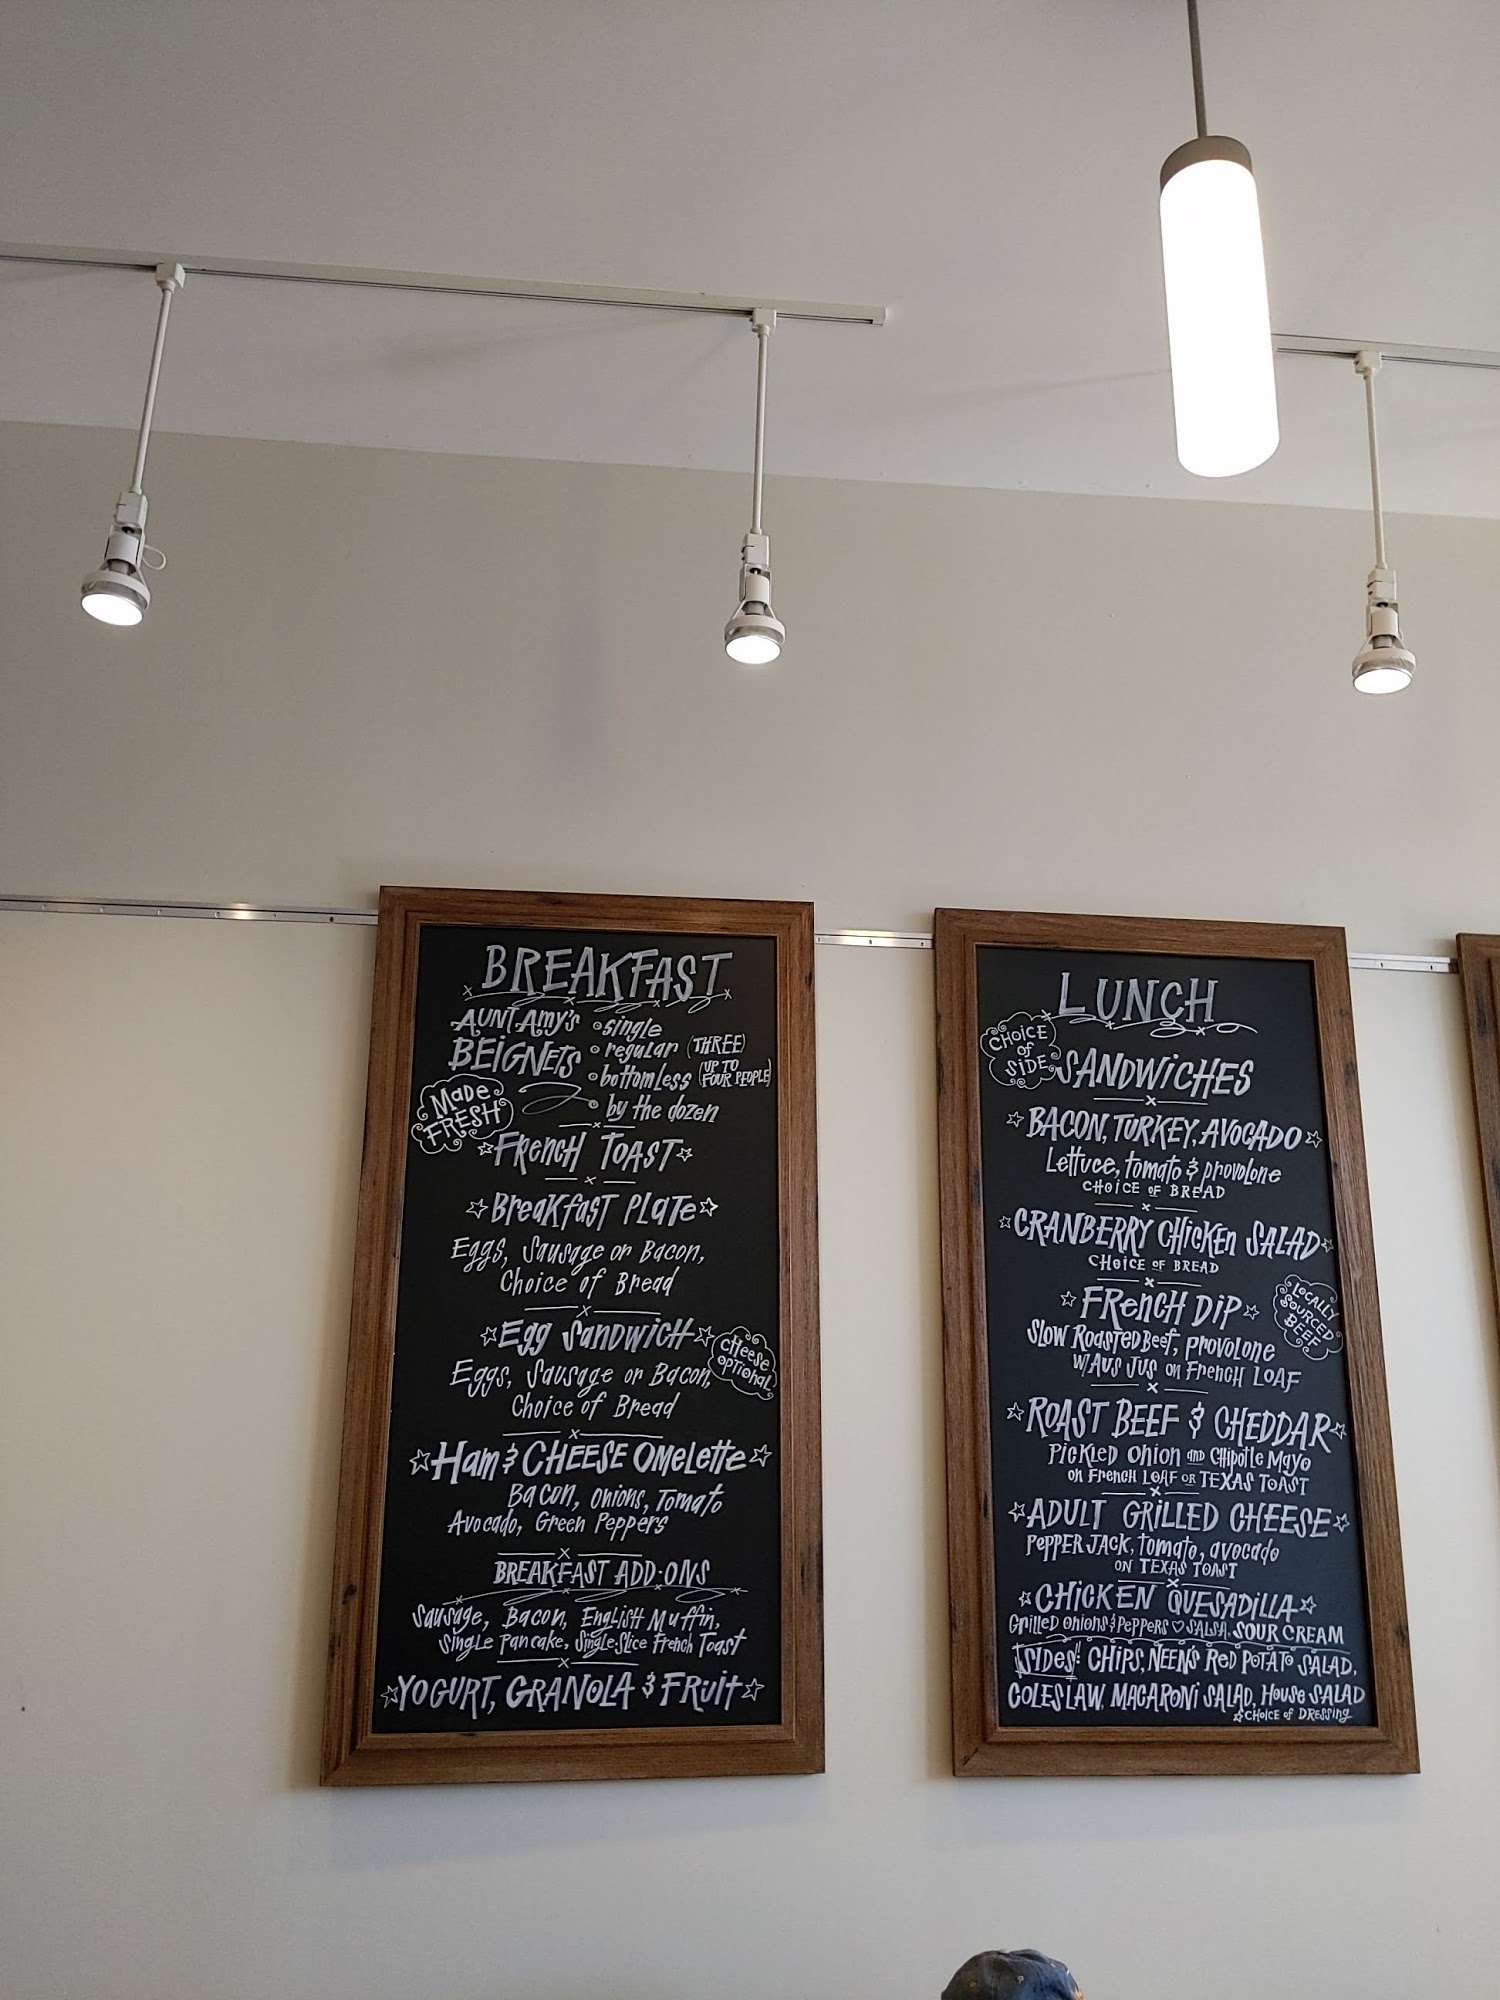 BREAKFAST
AUNT AMY'S
BEIGNETS
single
regular (THREE)
bottomless (UP TO FOUR PEOPLE)
by the dozen
MADE
FRESH
FRENCH TOAST
BREAKFAST PLATE
Eggs, Sausage or Bacon,
Choice of Bread
Egg SANDWICH
CHEESE
OPTIONAL
Eggs, Sausage or Bacon,
Choice of Bread
Ham & CHEESE OMELETTE
Bacon, onions, Tomato
Avocado, Green Peppers
BREAKFAST ADD-ONS
Sausage, Bacon, English Muffin,
Single Pancake, Single-Slice French Toast
YOGURT, GRANOLA & FRUIT
LUNCH
CHOICE
of
SIDE
SANDWICHES
BACON, TURKEY, AVOCADO
Lettuce, tomato & provolone
CHOICE OF BREAD
CRANBERRY CHICKEN SALAD
CHOICE OF BREAD
FRENCH DIP
LOCALLY
SOURCED
BEEF
SLOW ROASTED BEEF, PROVOLONE
W/AUS JUS on FRENCH LOAF
ROAST BEEF & CHEDDAR
PICKLED ONION AND CHIPOTLE MAYO
on FRENCH LOAF OR TEXAS TOAST
ADULT GRILLED CHEESE
PEPPER JACK, tomato, avocado
ON TEXAS TOAST
CHICKEN QUESADILLA
Grilled onions & Peppers ♡ SALSA, SOUR CREAM
SIDES: CHIPS, NEEN'S RED POTATO SALAD,
COLESLAW, MACARONI SALAD, HOUSE SALAD
☆CHOICE of DRESSING